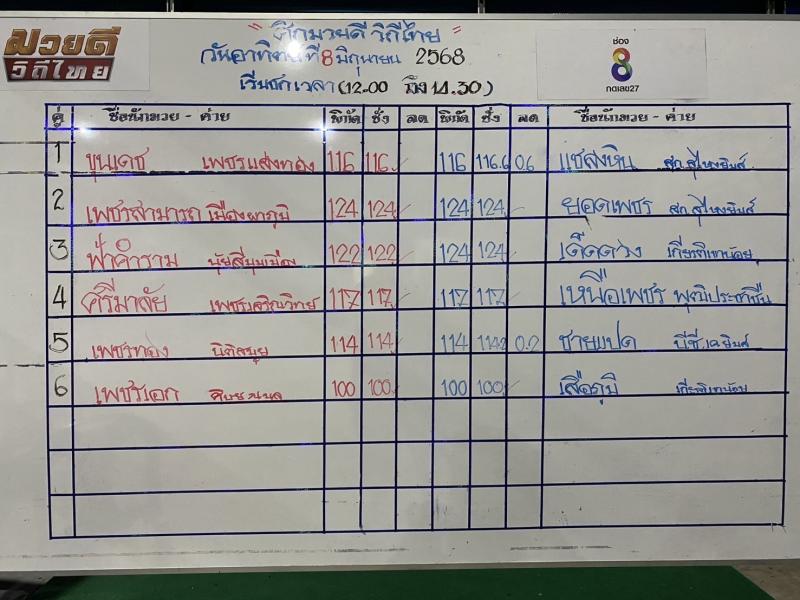 มวยดี
วิถีไทย
" ศึกมวยดี วิถีไทย "
วันอาทิตย์ที่ 8 มิถุนายน 2568
เริ่มชกเวลา (12.00 ถึง 14.30)
ช่อง
8
กดเลข27
คู่ ชื่อนักมวย - ค่าย พิกัด ชั่ง ลด พิกัด ชั่ง ลด ชื่อนักมวย - ค่าย
1 ขุนเดช เพชรแสงทอง 116 116 116 116.6 0.6 แชส์เงิน สก.สุไหงยิมส์
2 เพชรสามารถ เมืองผาภูมิ 124 124 124 124 ยอดเพชร สก.สุไหงยิมส์
3 ฟ้าคำราม 122 122 124 124 เด็ดดวง เกียรติเขาน้อย
4 ศรีมาลัย เพชรเจริญวิทย์ 117 117 117 117 เหนือเพชร พุฒิประชาชื่น
5 เพชรทอง 114 114 114 114.2 0.2 ชายแปด บีซี.เค.ยิมส์
6 เพชรเอก 100 100 100 100 เสือภูมิ เกียรติเขาน้อย